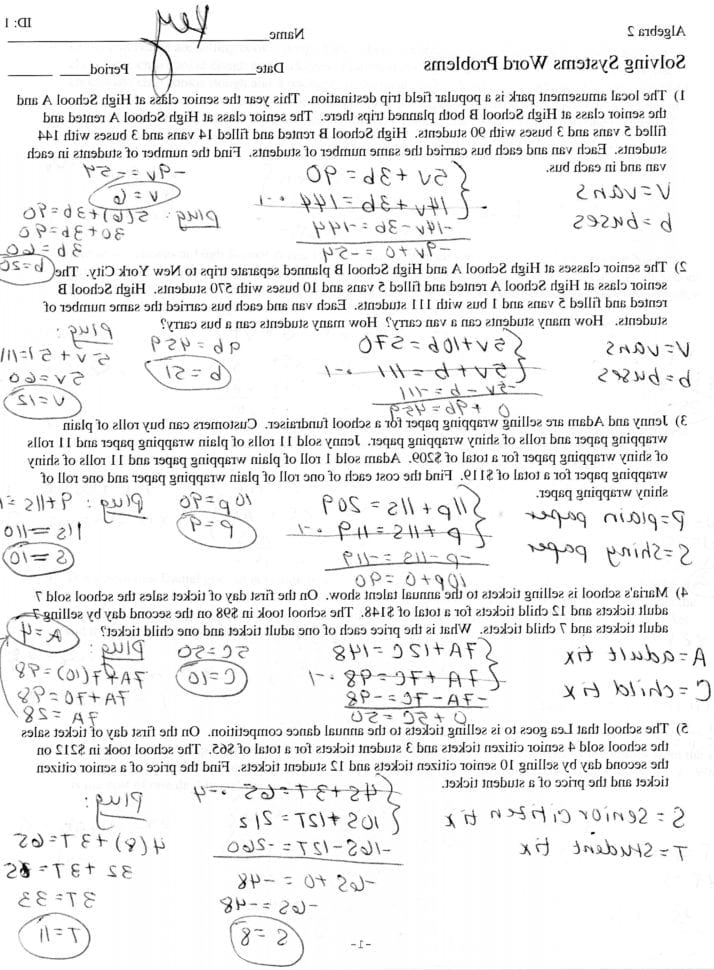 Algebra 2
Name
Key
ID: 1
Solving Systems Word Problems
Date
Period
1) The local amusement park is a popular field trip destination. This year the senior class at High School A and
the senior class at High School B both planned trips there. The senior class at High School A rented and
filled 5 vans and 3 buses with 90 students. High School B rented and filled 14 vans and 3 buses with 144
students. Each van and each bus carried the same number of students. Find the number of students in each
van and in each bus.
V=vans
b=buses
5v+3b=90
14v+3b=144 ·-1
-14v-3b=-144
-9v+0=-54
-9v=-54
v=6
plug: 5(6)+3b=90
30+3b=90
3b=60
b=20
2) The senior classes at High School A and High School B planned separate trips to New York City. The
senior class at High School A rented and filled 5 vans and 10 buses with 570 students. High School B
rented and filled 5 vans and 1 bus with 111 students. Each van and each bus carried the same number of
students. How many students can a van carry? How many students can a bus carry?
V=vans
b=buses
5v+10b=570
5v+b=111 ·-1
-5v-b=-111
0+9b=459
9b=459
b=51
plug:
5v+51=111
5v=60
v=12
3) Jenny and Adam are selling wrapping paper for a school fundraiser. Customers can buy rolls of plain
wrapping paper and rolls of shiny wrapping paper. Jenny sold 11 rolls of plain wrapping paper and 11 rolls
of shiny wrapping paper for a total of $209. Adam sold 1 roll of plain wrapping paper and 11 rolls of shiny
wrapping paper for a total of $119. Find the cost each of one roll of plain wrapping paper and one roll of
shiny wrapping paper.
P=plain paper
S=shiny paper
11p+11s=209
p+11s=119 ·-1
-p-11s=-119
10p+0=90
10p=90
p=9
plug: 9+11s=
11s=110
s=10
4) Maria's school is selling tickets to the annual talent show. On the first day of ticket sales the school sold 7
adult tickets and 12 child tickets for a total of $148. The school took in $98 on the second day by selling 7
adult tickets and 7 child tickets. What is the price each of one adult ticket and one child ticket?
A=adult tix
C=child tix
7A+12C=148
7A+7C=98 ·-1
-7A-7C=-98
0+5C=50
5C=50
C=10
plug:
7A+7(10)=98
7A+70=98
7A=28
A=4
5) The school that Lea goes to is selling tickets to the annual dance competition. On the first day of ticket sales
the school sold 4 senior citizen tickets and 3 student tickets for a total of $65. The school took in $212 on
the second day by selling 10 senior citizen tickets and 12 student tickets. Find the price of a senior citizen
ticket and the price of a student ticket.
S=senior citizen tix
T=student tix
4S+3T=65 ·-4
10S+12T=212
-16S-12T=-260
-6S+0=-48
-6S=-48
S=8
plug:
4(8)+3T=65
32+3T=65
3T=33
T=11
-1-